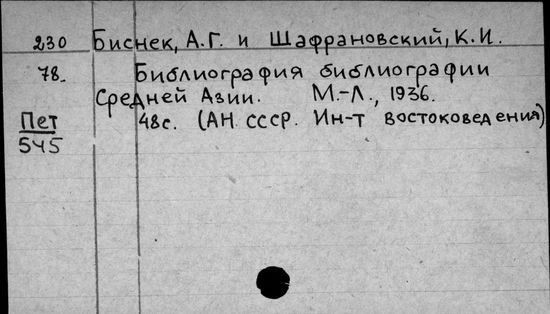 230 Биснек, А.Г. и Шафрановский, К.И.
78. Библиография библиографии
Средней Азии. М.-Л., 1936.
Пет 48с. (АН СССР. Ин-т востоковедения)
545